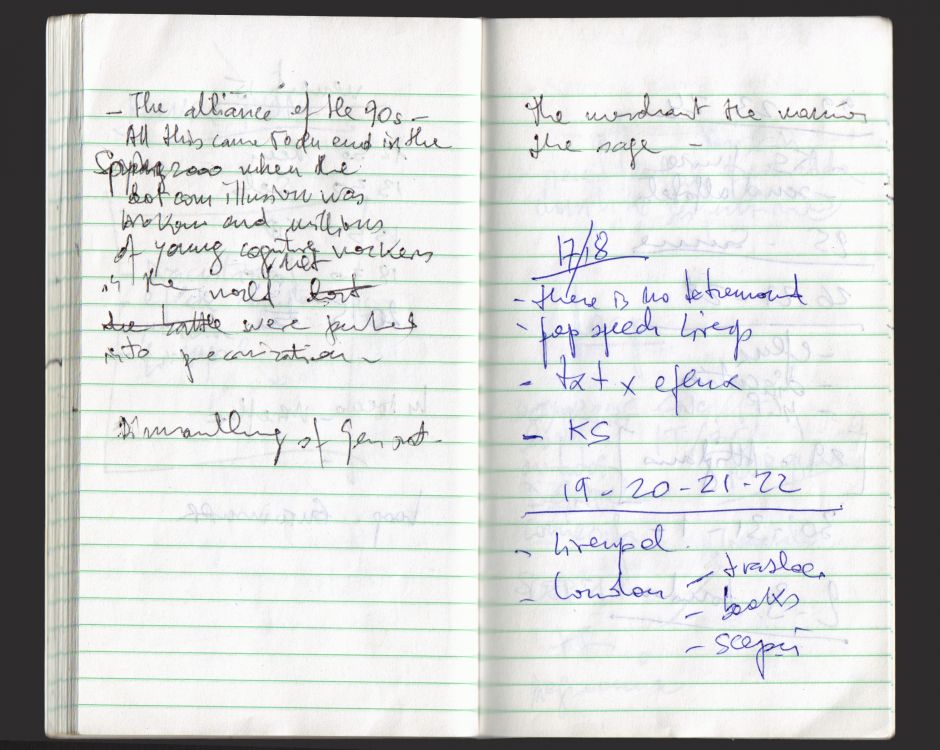 - The alliance of the 90s -
All this came to an end in the
Spring 2000 when the
dot com illusion was
broken and millions
of young cognitive workers
net
in the world lost
the battle were pushed
into precarization -
Dismantling of Gen
the merchant the warrior
the sage -
17/18
- there is no
- pop speech Liverp
- txt x eflux
- KS
19 - 20 - 21 - 22
- Liverpool
- London - trasloc.
- books
-